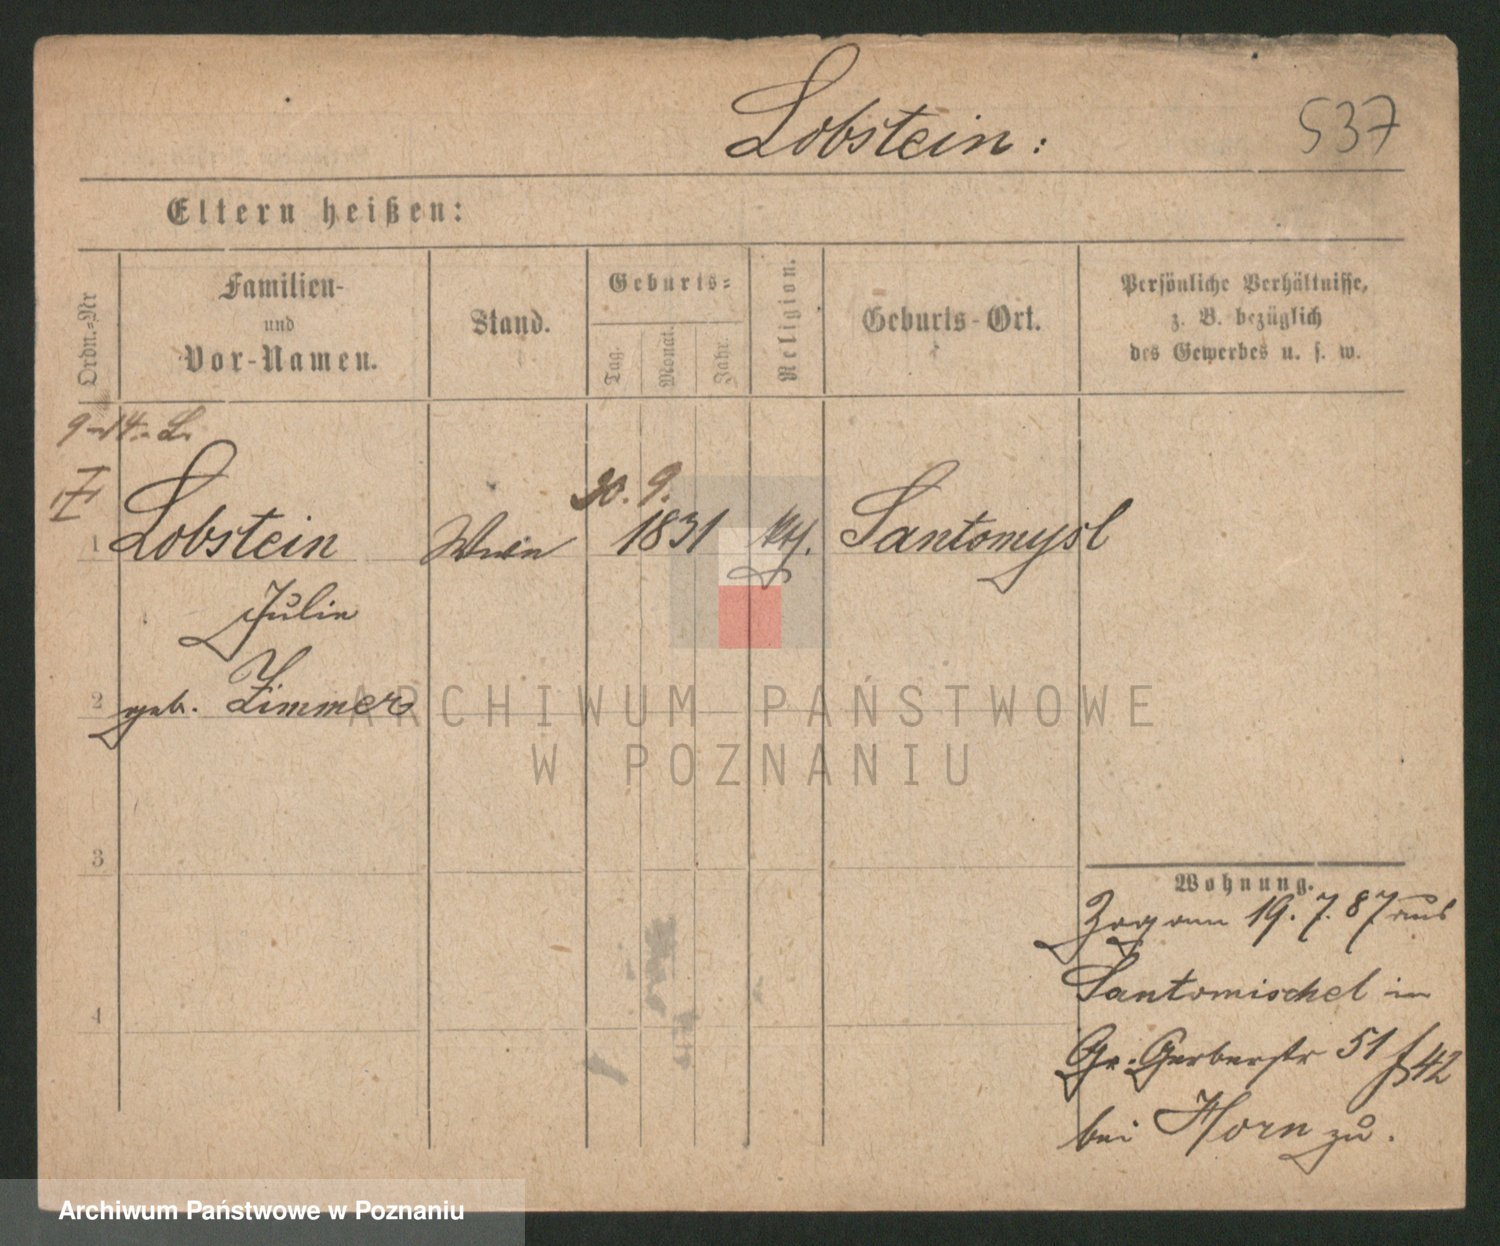 Lobstein: 537
Eltern heißen:
Ordn.=Nr
Familien-
und
Vor-Namen.
Stand.
Geburts=
Tag. Monat. Jahr.
Religion.
Geburts-Ort.
Persönliche Verhältnisse,
z. B. bezüglich
des Gewerbes u. s. w.
1 Lobstein 30. 9. 1831 Santomysl
Julie
2 geb. Zimmer
3
4
Wohnung.
Zog am 19. 7. 87 aus
Santomischel in
Gr. Gerberstr 51 42
bei Horn zu.
ARCHIWUM PAŃSTWOWE
W POZNANIU
Archiwum Państwowe w Poznaniu